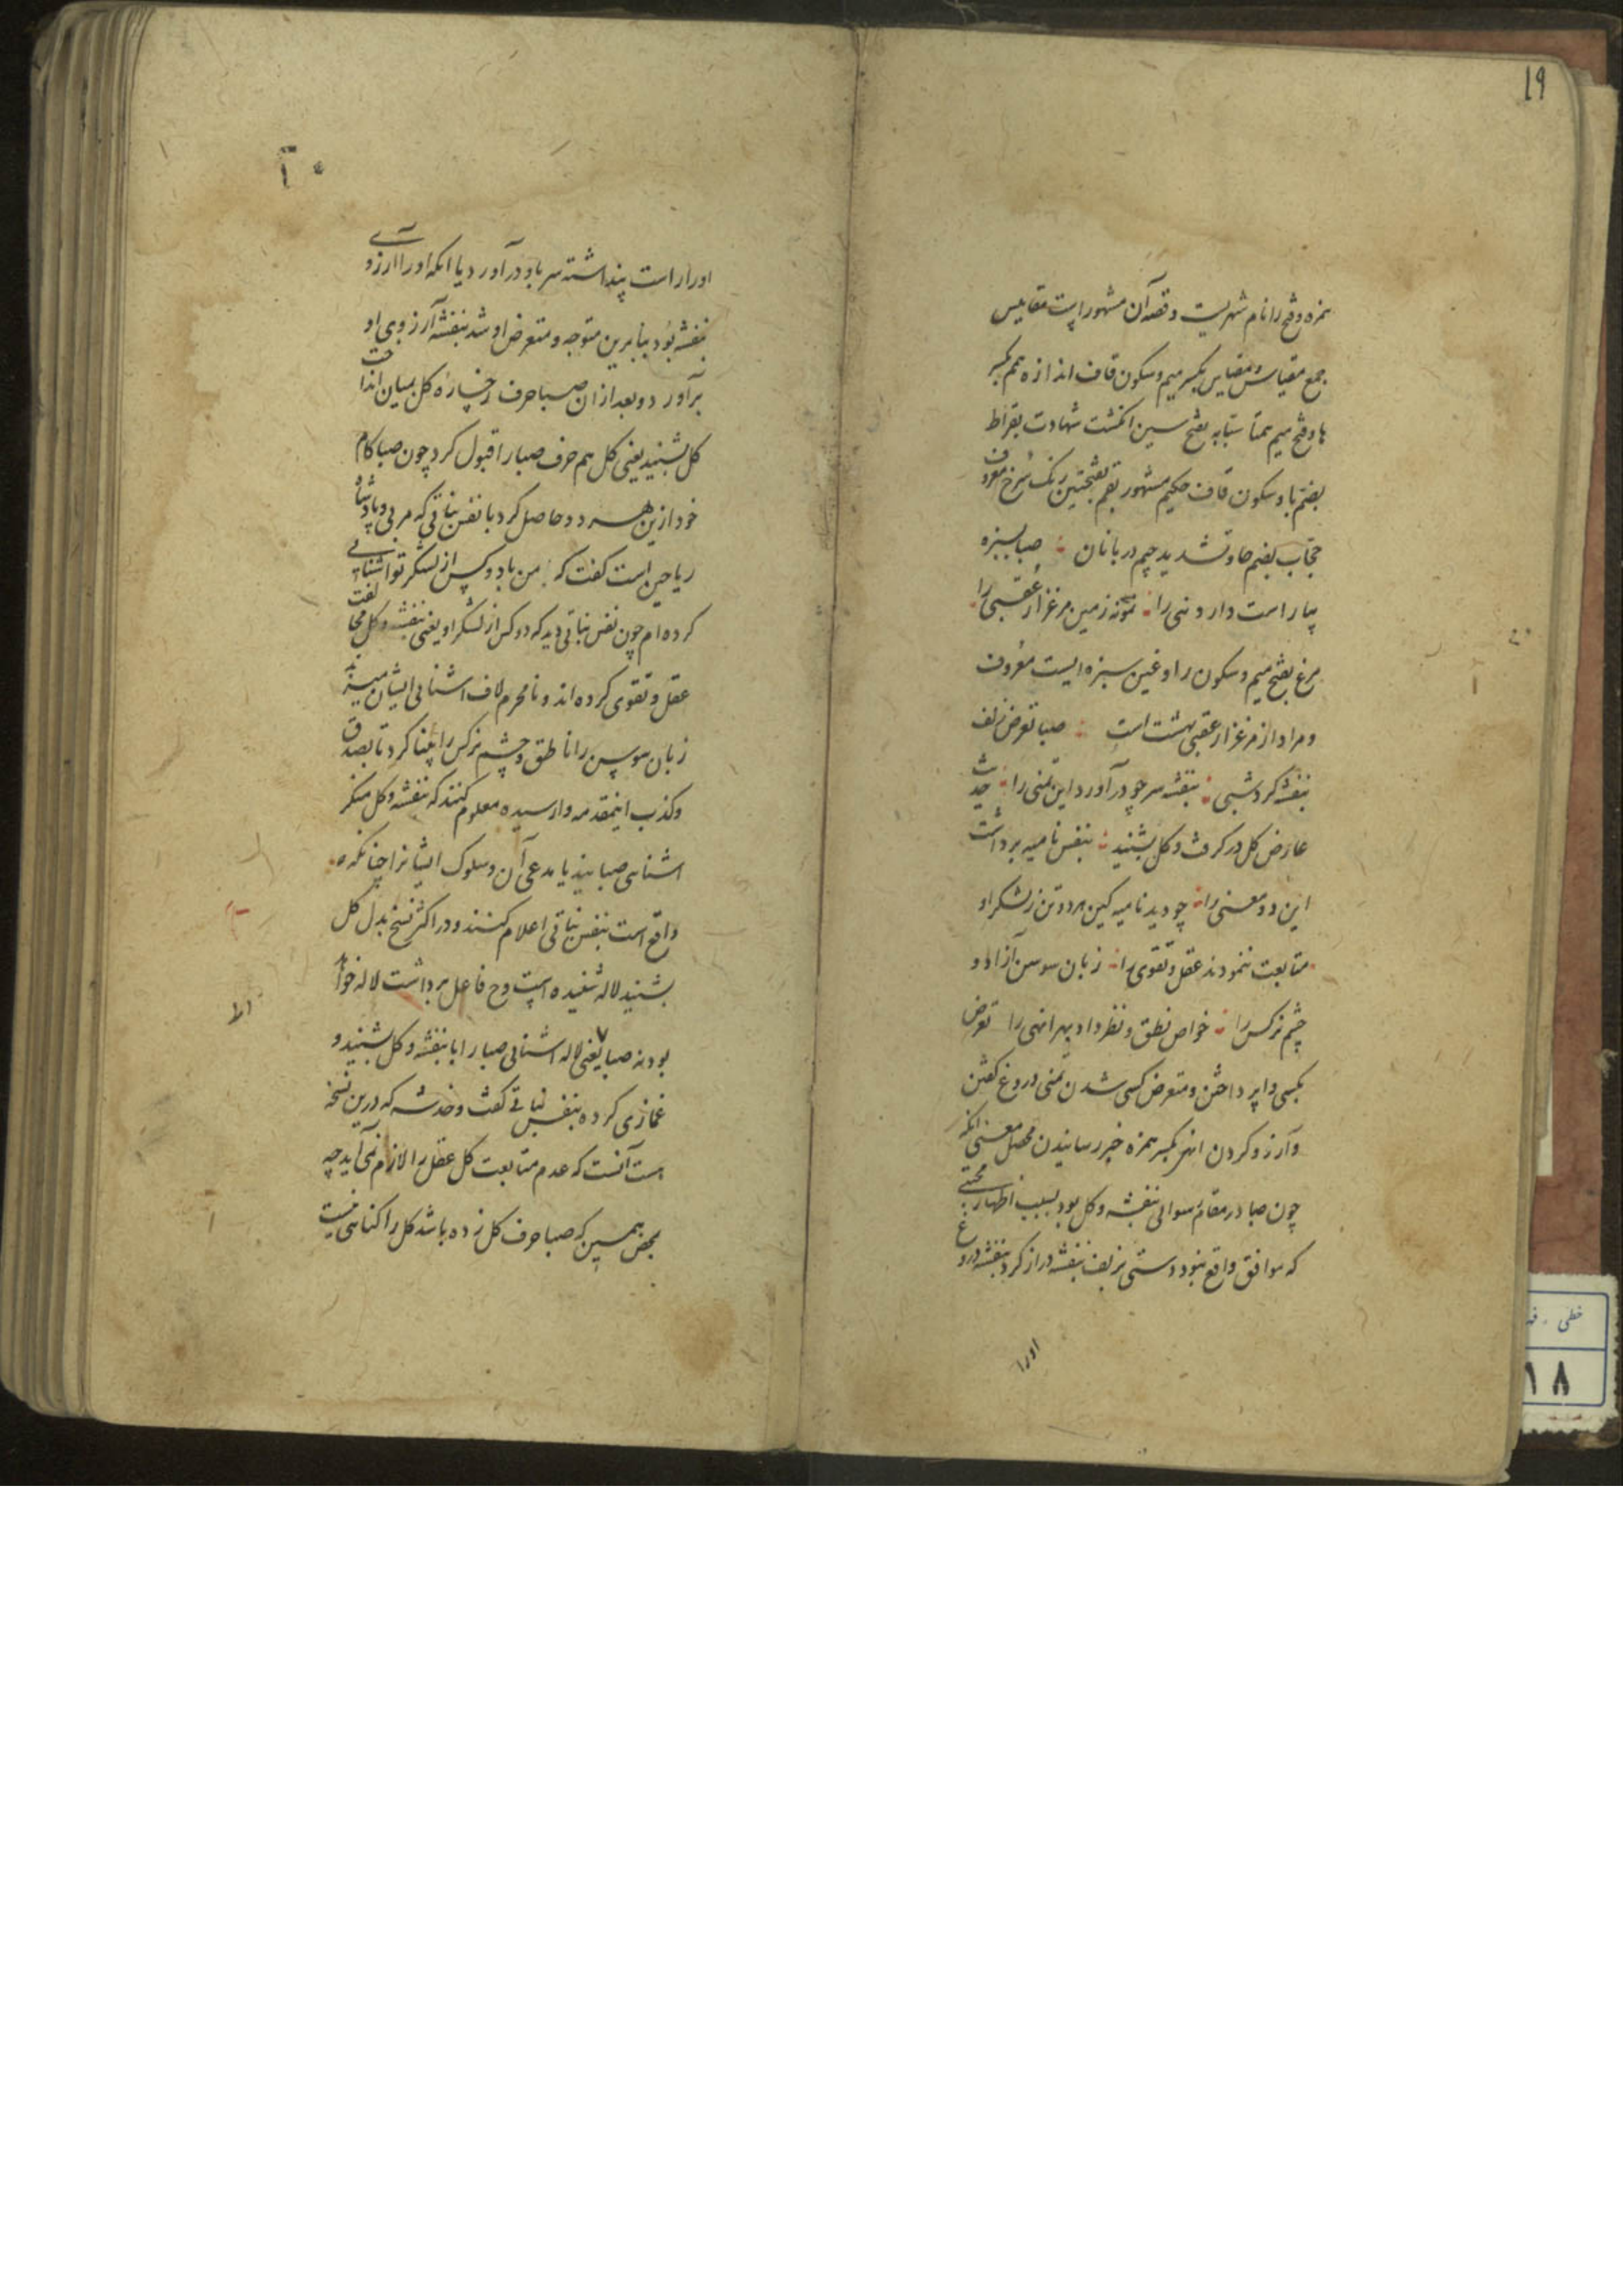 19
همزه و فتح را نام شهریست و قصه آن مشهور است مقاییس
جمع مقیاس و مقیاس بکسر میم و سکون قاف اندازه همم بکسر
ها و فتح میم همتا سبابه بفتح سین انگشت شهادت بقراط
بضم با و سکون قاف حکیم مشهور بقم بفتحتین رنگ سرخ معروف
حجاب بضم حا و تشدید جیم دربانان صبا بسبزه
بیاراست دار دنیی را نمونه زمین مرغزار عقبی را
مرغ بفتح میم و سکون را و غین سبزه ایست معروف
و مراد از مرغزار عقبی بهشت است صبا تعرض زلف
بنفشه کرد شبی بنفشه سر چو درآورد این تمنی را حدیث
عارض گل درگرفت و گل بشنید بنفس نامیه برداشت
این دو معنی را چو دید نامیه کین هر دو تن ز لشکر او
متابعت ننمودند عقل و تقوی را زبان سوسن آزاد و
چشم نرگس را خواص نطق و نظر داد بهر انهی را تعرض
بکسی واپرداختن و متعرض کسی شدن تمنی دروغ گفتن
و آرزو کردن انهی بکسر همزه خبر رسانیدن محصل معنی انکه
چون صبا در مقام سوالی بنفشه و گل بود بسبب اظهار محبتی
که موافق واقع نبود دستی بزلف بنفشه دراز کرد بنفشه دروغ
اورا
۲۰
اورا راست پنداشته سر باو درآورد یا انکه اورا ارزوی
بنفشه بود بنابرین متوجه و متعرض او شد بنفشه آرزوی او
برآورد و بعد از ان صبا حرف رخساره گل بمیان انداخت
گل بشنید یعنی گل هم حرف صبا را قبول کرد چون صبا کام
خود ازین هر دو حاصل کرد با نفس نباتی که مربی و پادشاه
ریاحین است گفت که من با دو کس از لشکر تو اشنائی
کرده ام چون نفس نباتی دید که دو کس از لشکر او یعنی بنفشه و گل مخالفت
عقل و تقوی کرده اند و نامحرم لاف اشنائی ایشان میزند
زبان سوسن را ناطق و چشم نرگس را بینا کرد تا بصدق
و کذب اینمقدمه وارسیده معلوم کنند که بنفشه و گل منکر
اشنایی صبایند یا مدعی آن و سلوک ایشانرا چنانکه
واقع است بنفس نباتی اعلام کنند و در اکثر نسخ بدل گل
بشنید لاله شنید است و ح فاعل برداشت لاله خواهد
بود نه صبا یعنی لاله اشنائی صبا را با بنفشه و گل شنید و
غمازی کرده بنفس نباتی گفت و خدشه که درین نسخه
هست آنست که عدم متابعت گل عقل را لازم نمی آید چه
بمحض همین که صبا حرف گل زده باشد گل را گناهی نیست
خطی
۱۸